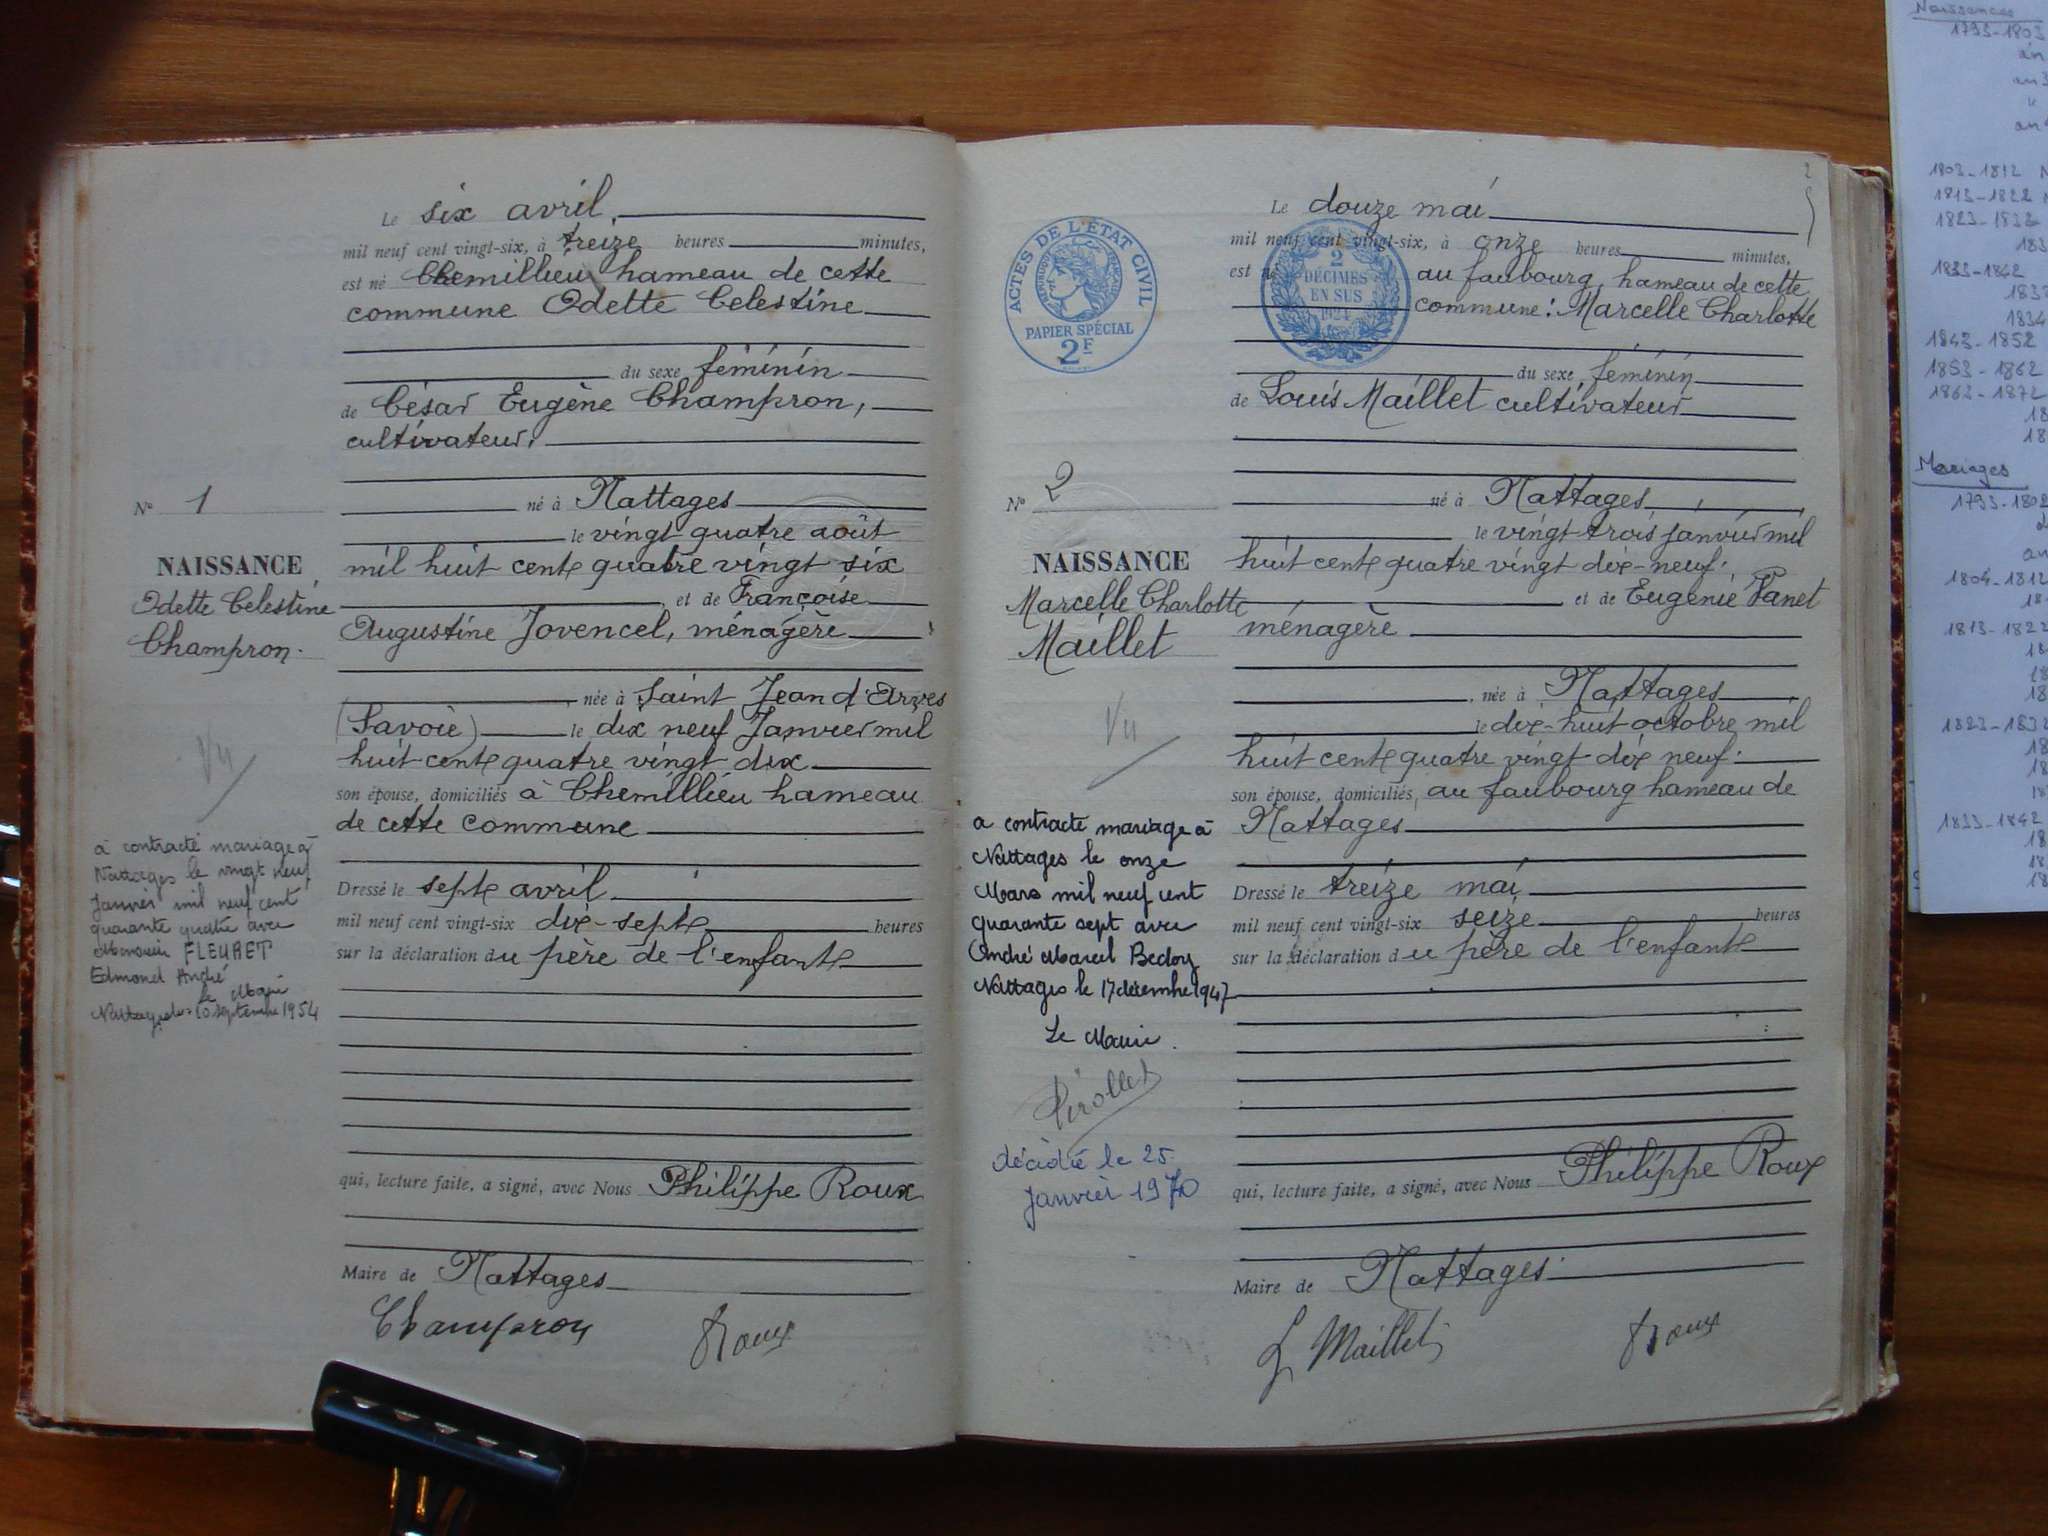 Le six avril,
mil neuf cent vingt-six, à treize heures minutes,
est né Chemillieu hameau de cette
commune Odette Celestine
du sexe féminin
de César Eugène Champron,
cultivateur.
né à Nattages
le vingt quatre août
mil huit cent quatre vingt six
et de Françoise
Augustine Jovencel, ménagère
née à Saint Jean d'Arves
(Savoie) le dix neuf Janvier mil
huit cent quatre vingt dix
son épouse, domiciliés à Chemillieu hameau
de cette commune
Dressé le sept avril
mil neuf cent vingt-six dix-sept heures
sur la déclaration du père de l'enfant
qui, lecture faite, a signé, avec Nous Philippe Roux
Maire de Nattages
Champron Roux
N° 1
NAISSANCE
Odette Celestine
Champron.
Vu
a contracté mariage à
Nattages le vingt neuf
Janvier mil neuf cent
quarante quatre avec
Monsieur FLEURET
Edmond André
le Maire
Nattages le 10 septembre 1954
2
ACTES DE L'ÉTAT CIVIL
RÉPUBLIQUE FRANÇAISE
PAPIER SPÉCIAL
2F
2
DÉCIMES
EN SUS
1924
Le douze mai
mil neuf cent vingt-six, à onze heures minutes,
est né au faubourg, hameau de cette
commune: Marcelle Charlotte
du sexe féminin
de Louis Maillet cultivateur
né à Nattages
le vingt trois janvier mil
huit cent quatre vingt dix-neuf.
et de Eugénie Panet
ménagère
née à Nattages
le dix-huit octobre mil
huit cent quatre vingt dix neuf.
son épouse, domiciliés au faubourg hameau de
Nattages
Dressé le treize mai
mil neuf cent vingt-six seize heures
sur la déclaration du père de l'enfant
qui, lecture faite, a signé, avec Nous Philippe Roux
Maire de Nattages
L Maillet Roux
N° 2
NAISSANCE
Marcelle Charlotte
Maillet
Vu
a contracté mariage à
Nattages le onze
Mars mil neuf cent
quarante sept avec
André Marcel
Nattages le 17 décembre 1947
Le Maire.
décédé le 25
janvier 1970
Naissances
1793-1803
an
1803-1812
1813-1822
1823-1832
1833-1842
1834
1843-1852
1853-1862
1863-1872
Mariages
1793-1802
an
1804-1812
1813-1822
1823-1832
1833-1842